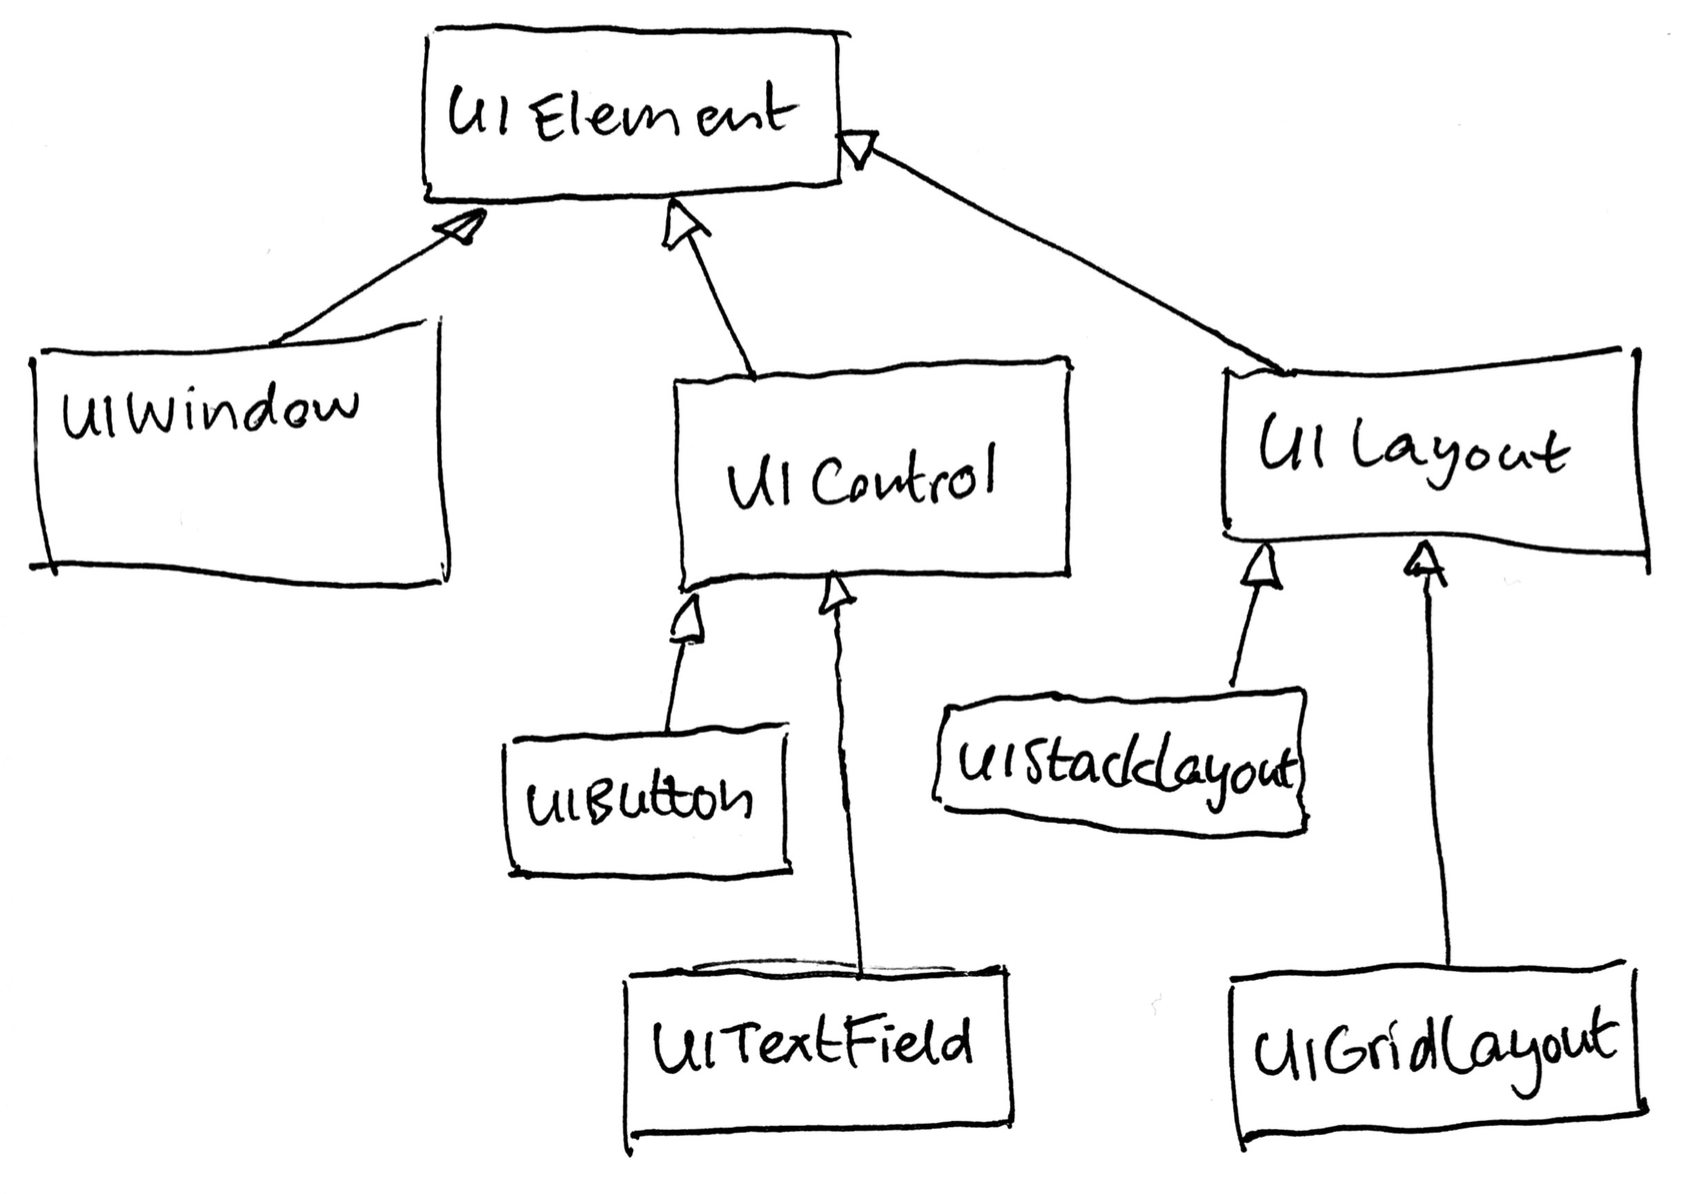 UIElement
UIWindow
UIControl
UILayout
UIButton
UIStackLayout
UITextField
UIGridLayout